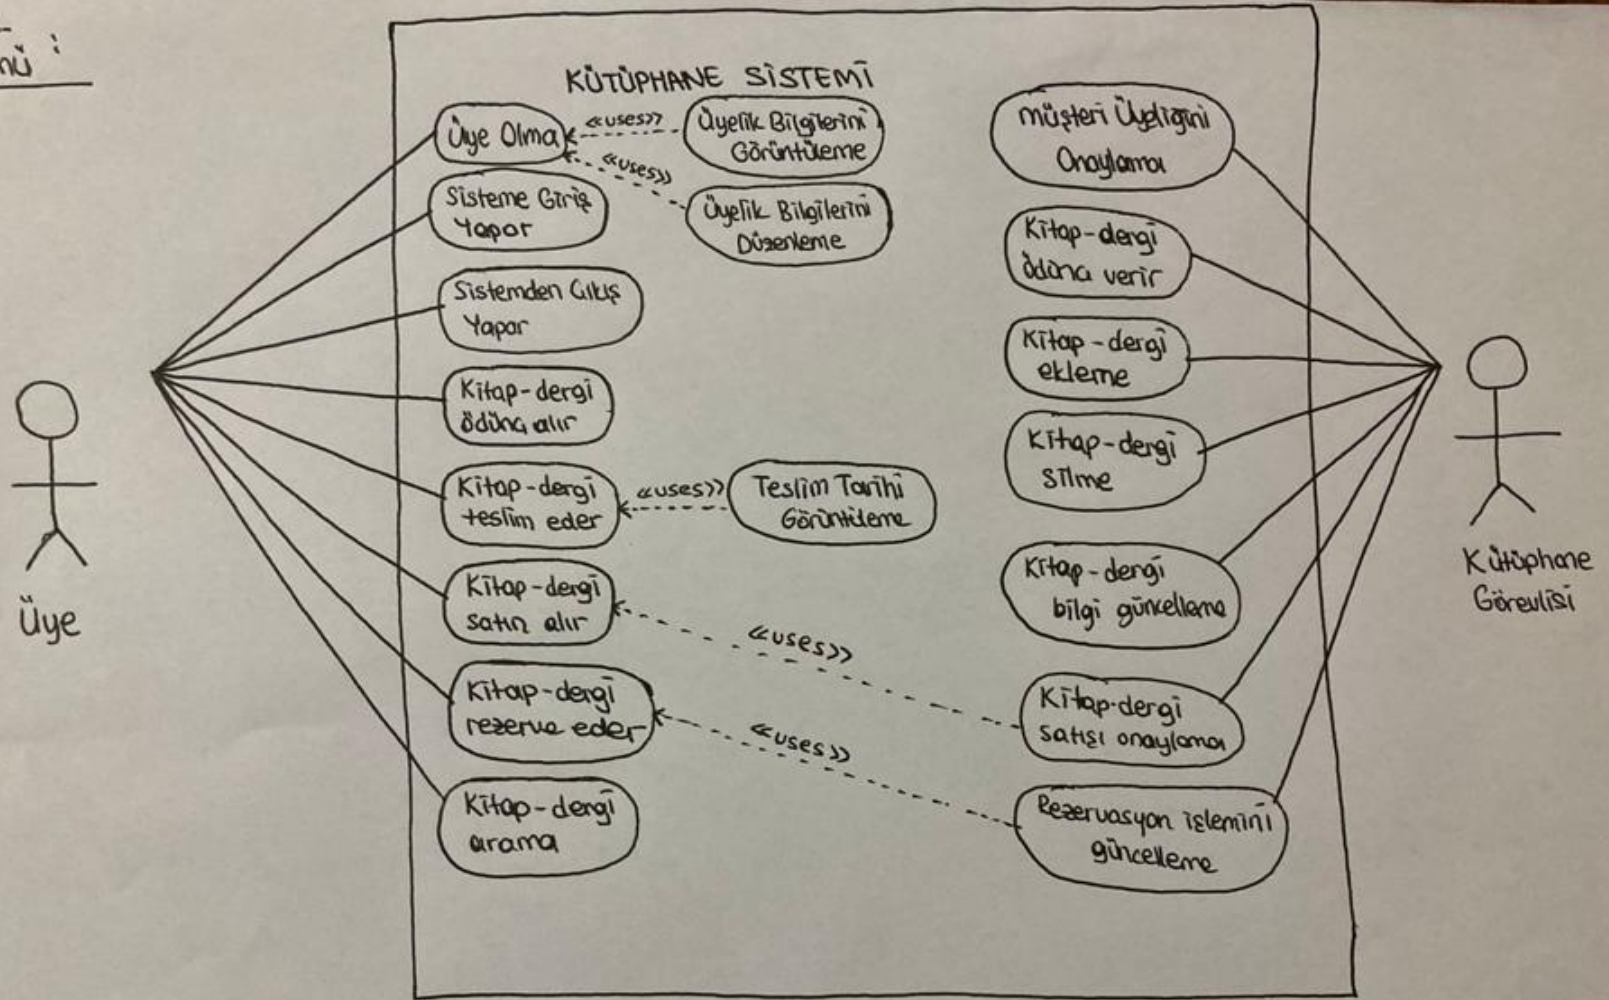 nü :
KÜTÜPHANE SİSTEMİ
Üye Olma
<<uses>>
Üyelik Bilgilerini
Görüntüleme
<<uses>>
Üyelik Bilgilerini
Düzenleme
Sisteme Giriş
Yapar
Sistemden Çıkış
Yapar
Kitap-dergi
ödünç alır
Kitap-dergi
teslim eder
<<uses>>
Teslim Tarihi
Görüntüleme
Kitap-dergi
satın alır
<<uses>>
Kitap-dergi
rezerve eder
<<uses>>
Kitap-dergi
arama
Müşteri Üyeliğini
Onaylama
Kitap-dergi
ödünç verir
Kitap-dergi
ekleme
Kitap-dergi
silme
Kitap-dergi
bilgi güncelleme
Kitap-dergi
satışı onaylama
Rezervasyon işlemini
güncelleme
Üye
Kütüphane
Görevlisi